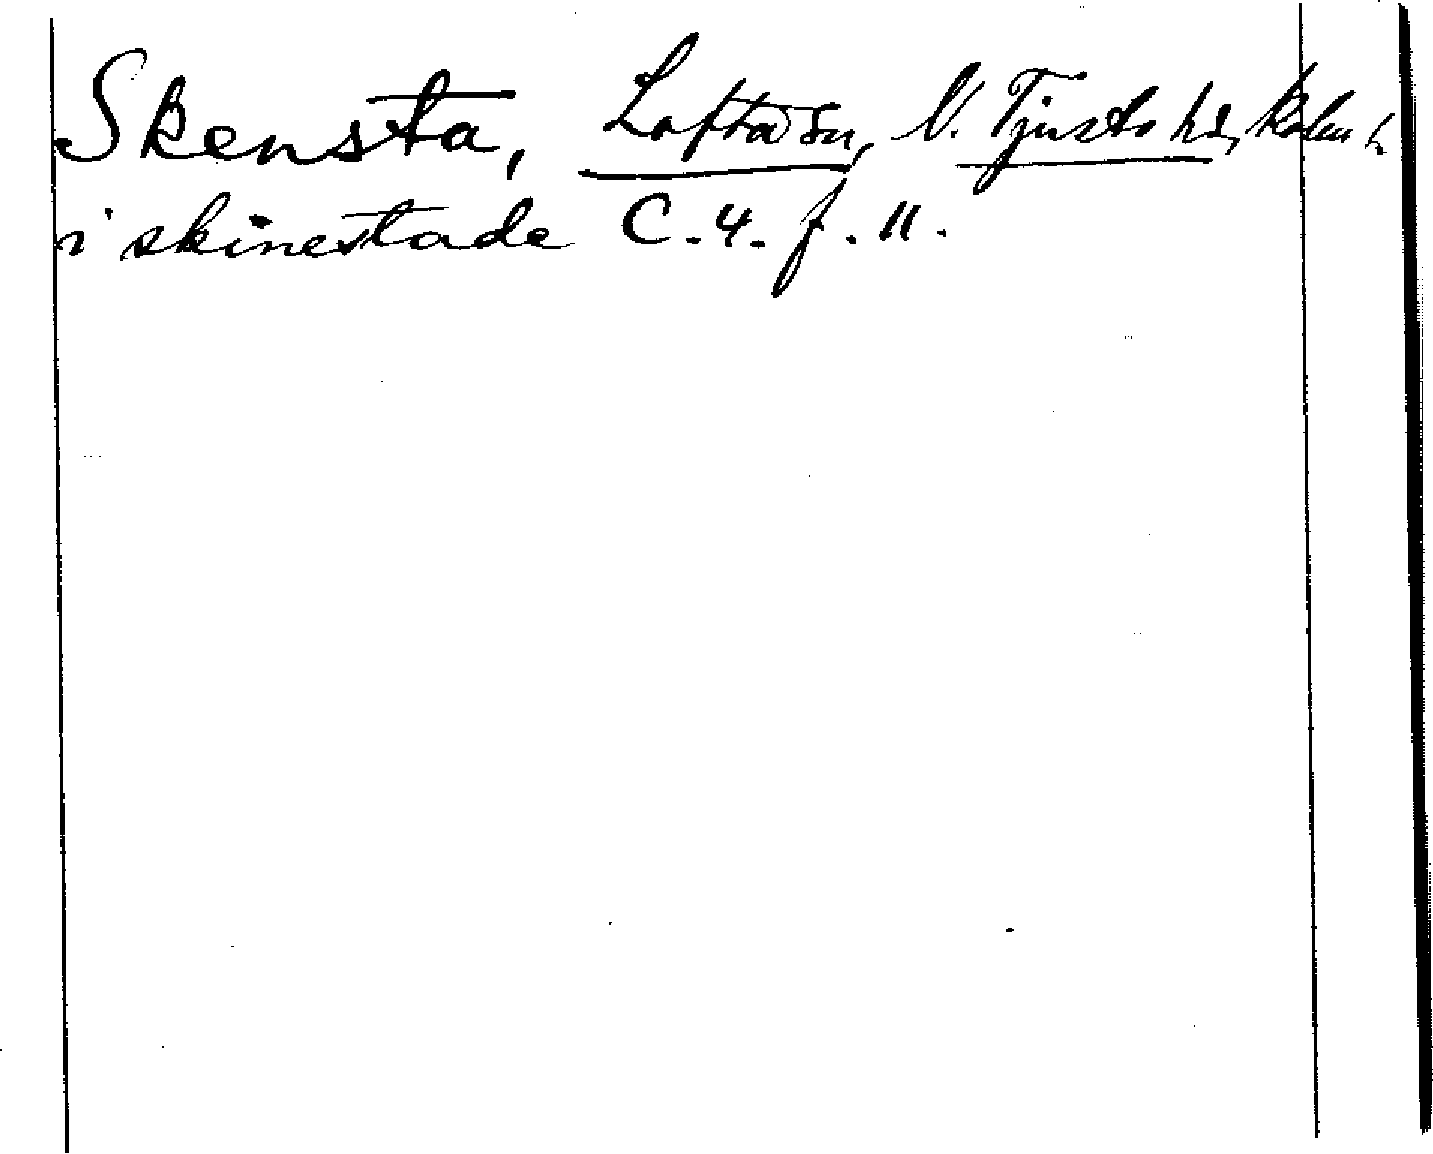 Skensta, Lofta sn, N. Tjusts hd, Kalm l.
i skinestade C. 4. f. 11.